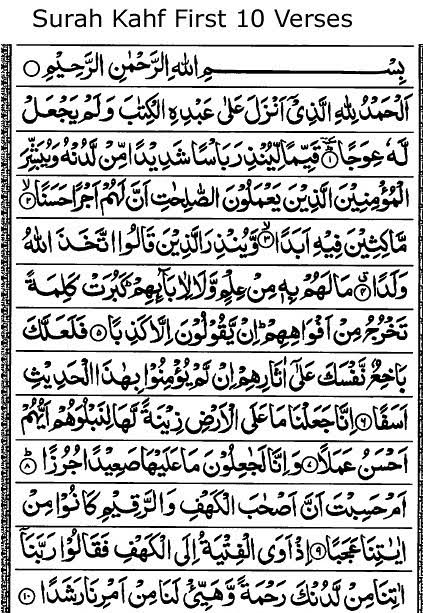 Surah Kahf First 10 Verses
بِسْــــــــــــمِ اللهِ الرَّحْمٰنِ الرَّحِيْمِ ○
اَلْحَمْدُ لِلّٰهِ الَّذِيْٓ اَنْزَلَ عَلٰى عَبْدِهِ الْكِتٰبَ وَلَمْ يَجْعَلْ
لَّهٗ عِوَجًا ۜ﴿۱﴾ قَيِّمًا لِّيُنْذِرَ بَاْسًا شَدِيْدًا مِّنْ لَّدُنْهُ وَيُبَشِّرَ
الْمُؤْمِنِيْنَ الَّذِيْنَ يَعْمَلُوْنَ الصّٰلِحٰتِ اَنَّ لَهُمْ اَجْرًا حَسَنًا ۙ﴿۲﴾
مَّاكِثِيْنَ فِيْهِ اَبَدًا ۙ﴿۳﴾ وَّيُنْذِرَ الَّذِيْنَ قَالُوا اتَّخَذَ اللهُ
وَلَدًا ۗ﴿۴﴾ مَا لَهُمْ بِهٖ مِنْ عِلْمٍ وَّلَا لِاٰبَآئِهِمْ ؕ كَبُرَتْ كَلِمَةً
تَخْرُجُ مِنْ اَفْوَاهِهِمْ ؕ اِنْ يَّقُوْلُوْنَ اِلَّا كَذِبًا ﴿۵﴾ فَلَعَلَّكَ
بَاخِعٌ نَّفْسَكَ عَلٰٓى اٰثَارِهِمْ اِنْ لَّمْ يُؤْمِنُوْا بِهٰذَا الْحَدِيْثِ
اَسَفًا ﴿۶﴾ اِنَّا جَعَلْنَا مَا عَلَى الْاَرْضِ زِيْنَةً لَّهَا لِنَبْلُوَهُمْ اَيُّهُمْ
اَحْسَنُ عَمَلًا ﴿۷﴾ وَاِنَّا لَجٰعِلُوْنَ مَا عَلَيْهَا صَعِيْدًا جُرُزًا ؕ﴿۸﴾
اَمْ حَسِبْتَ اَنَّ اَصْحٰبَ الْكَهْفِ وَالرَّقِيْمِ كَانُوْا مِنْ
اٰيٰتِنَا عَجَبًا ﴿۹﴾ اِذْ اَوَى الْفِتْيَةُ اِلَى الْكَهْفِ فَقَالُوْا رَبَّنَآ
اٰتِنَا مِنْ لَّدُنْكَ رَحْمَةً وَّهَيِّئْ لَنَا مِنْ اَمْرِنَا رَشَدًا ﴿۱۰﴾